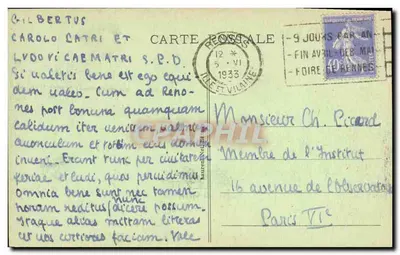 GILBERTUS
CAROLO PATRI ET
LVDOVICAE MATRI S.P.D.
Si valetis bene est ego equi
dem valeo. Cum ad Redo-
nes post bonum quamquam
calidum iter venirem
avunculum et totam eius domum
inveni. Erant tunc per civitatem
feriae et ludi, quos pervidimus
omnia bene sunt nec tamen
horam reditus nunc dicere possum.
Itaque alias mittam litteras
et vos certiores faciam. Vale
CARTE POSTALE
RENNES
12 *
5 - VI
1933
ILLE ET VILAINE
- 9 JOURS PAR AN -
- FIN AVRIL DEB. MAI -
- FOIRE DE RENNES
40
Monsieur Ch. Picard
Membre de l'Institut
16 avenue de l'Observatoire
Paris VIe
CPhartic.com